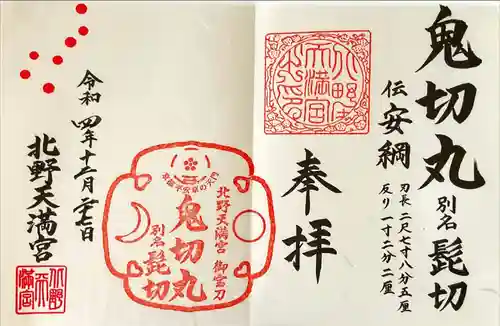 鬼切丸 別名 髭切
伝 安綱
刃長 二尺七寸八分五厘
反り 一寸二分二厘
奉拝
北野天満宮 御宝刀
鬼切丸
別名 髭切
令和四年十二月二十七日
北野天満宮